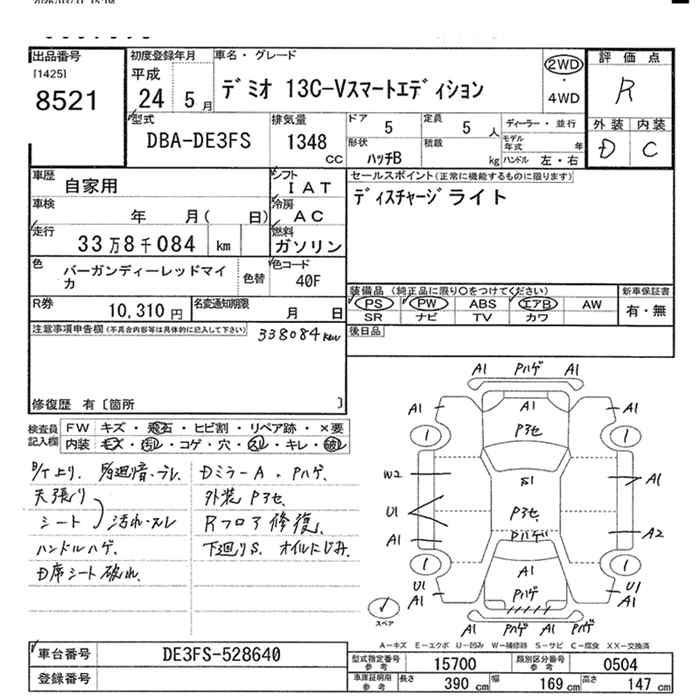 出品番号 初度登録年月 車名・グレード 評価点
[1425] 平成 デミオ 13C-Vスマートエディション 2WD・4WD R
8521 24年 5月
型式 排気量 ドア 5 定員 5人 ディーラー・並行 外装 内装
DBA-DE3FS 1348cc 形状 ハッチB 積載 kg モデル年式 年 D C
ハンドル 左・右
車歴 自家用 シフト IAT セールスポイント(正常に機能するものに限ります)
車検 年 月( 日) 冷房 AC ディスチャージライト
走行 33万8千084 km 燃料 ガソリン
色 バーガンディーレッドマイカ 色替 色コード 40F
装備品(純正品に限り○をつけてください) 新車保証書
R券 10,310円 名変通知期限 月 日 PS PW ABS エアB AW 有・無
SR ナビ TV カワ
注意事項申告欄(不具合内容等は具体的に記入して下さい) 338084km 後日品
修復歴 有〔箇所 〕
検査員記入欄 FW キズ・飛石・ヒビ割・リペア跡・×要
内装 キズ・汚れ・コゲ・穴・スレ・キレ・破れ
天張り
シート 汚れ・スレ
ハンドルハゲ.
D席シート破れ.
DミラーA.Pハゲ.
外装P3セ.
Rフロア修復.
下廻りS.オイルにじみ.
A1 Pハゲ A1
A1 A1 A1
P3セ
W2 S1 A1
U1 P3セ
A1 Pハゲ A2
U1 A1 U1
A1 Pハゲ A1
A1 Pハゲ A1
スペア
A-キズ E-エクボ U-凹み W-補修跡 S-サビ C-腐食 XX-交換済
車台番号 DE3FS-528640 型式指定番号 参考 15700 類別区分番号 参考 0504
登録番号 車庫証明用 参考 長さ 390cm 幅 169cm 高さ 147cm